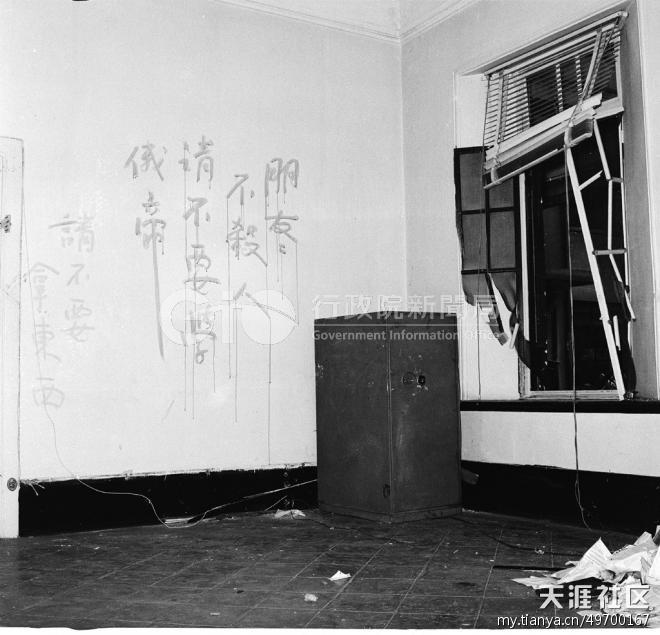 朋友
不殺人
請不要學
俄帝
請不要
拿東西
GIO
行政院新聞局
Government Information Office
天涯社区
my.tianya.cn/49700167